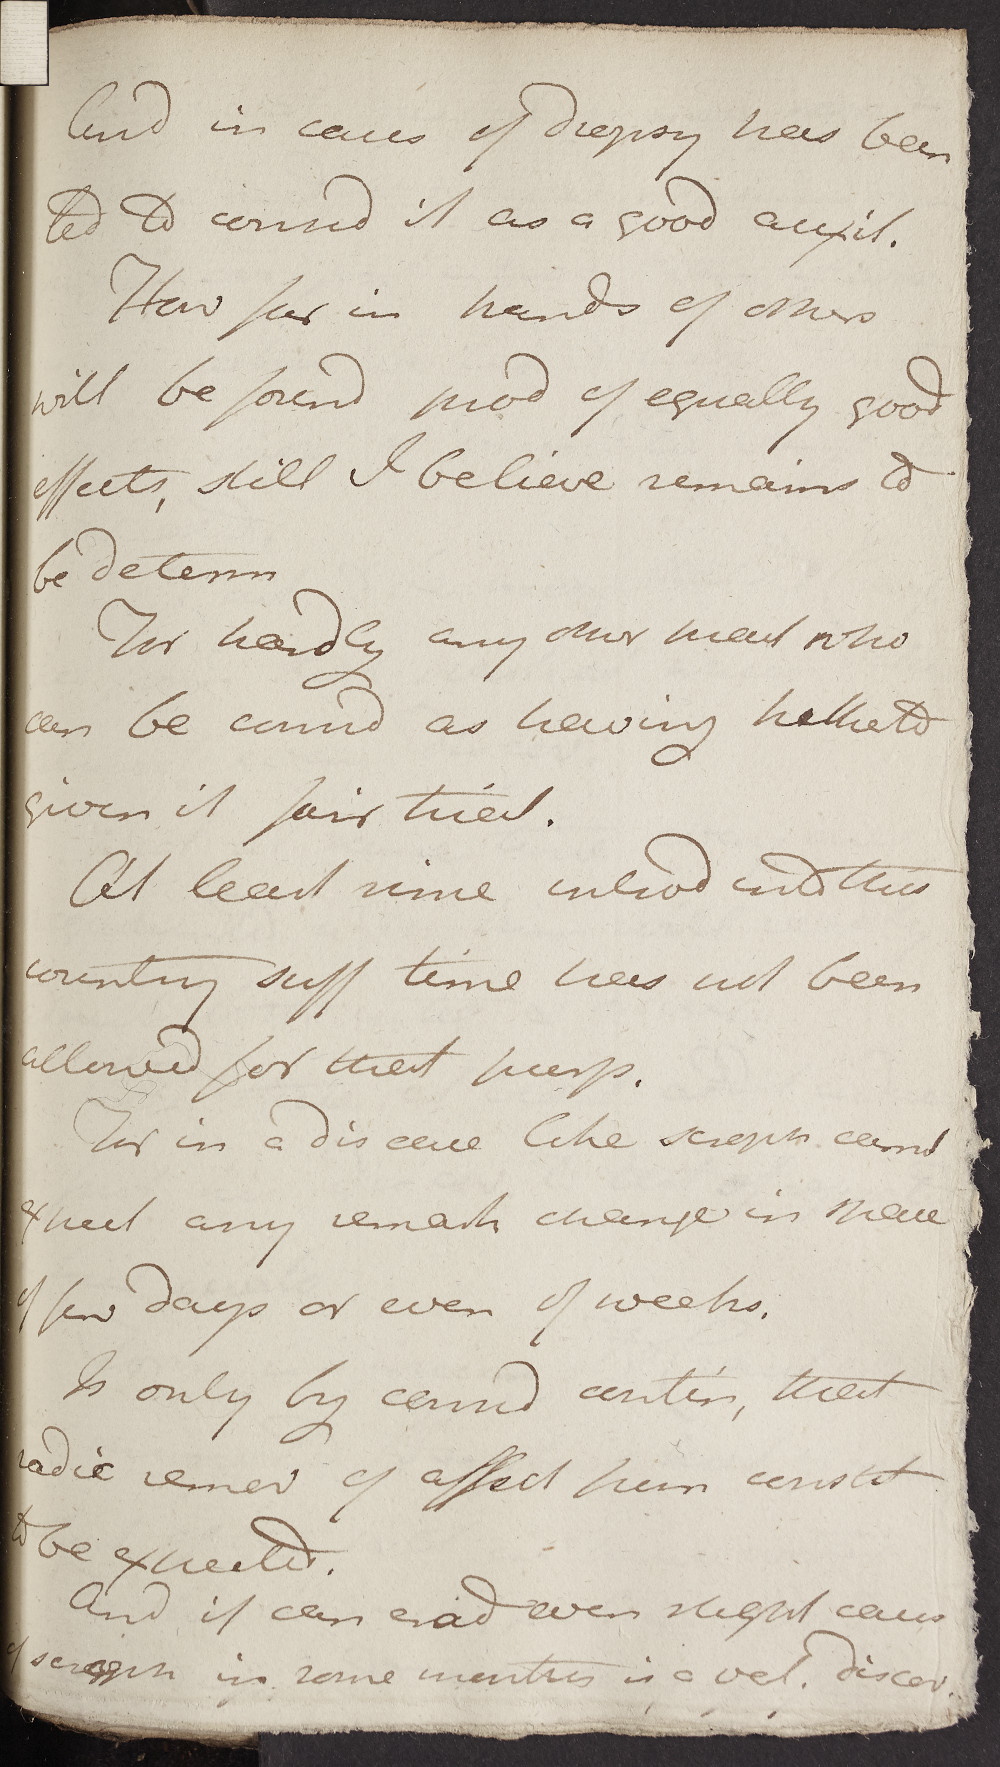 And in cases of dropsy has been
led to consid it as a good auxil.
How far in hands of others
will be found prod of equally good
effects, still I believe remains to
be determ
For hardly any other pract who
can be consid as having hitherto
given it fair trial.
At least since introd into this
country suff time has not been
allowed for that purp.
For in a disease like scroph cannt
expect any remark change in space
of few days or even of weeks.
Is only by consid contin, that
radic remov of affect from constit
to be expected.
And if can erad even slight cases
of scroph in some months is a val. discov.